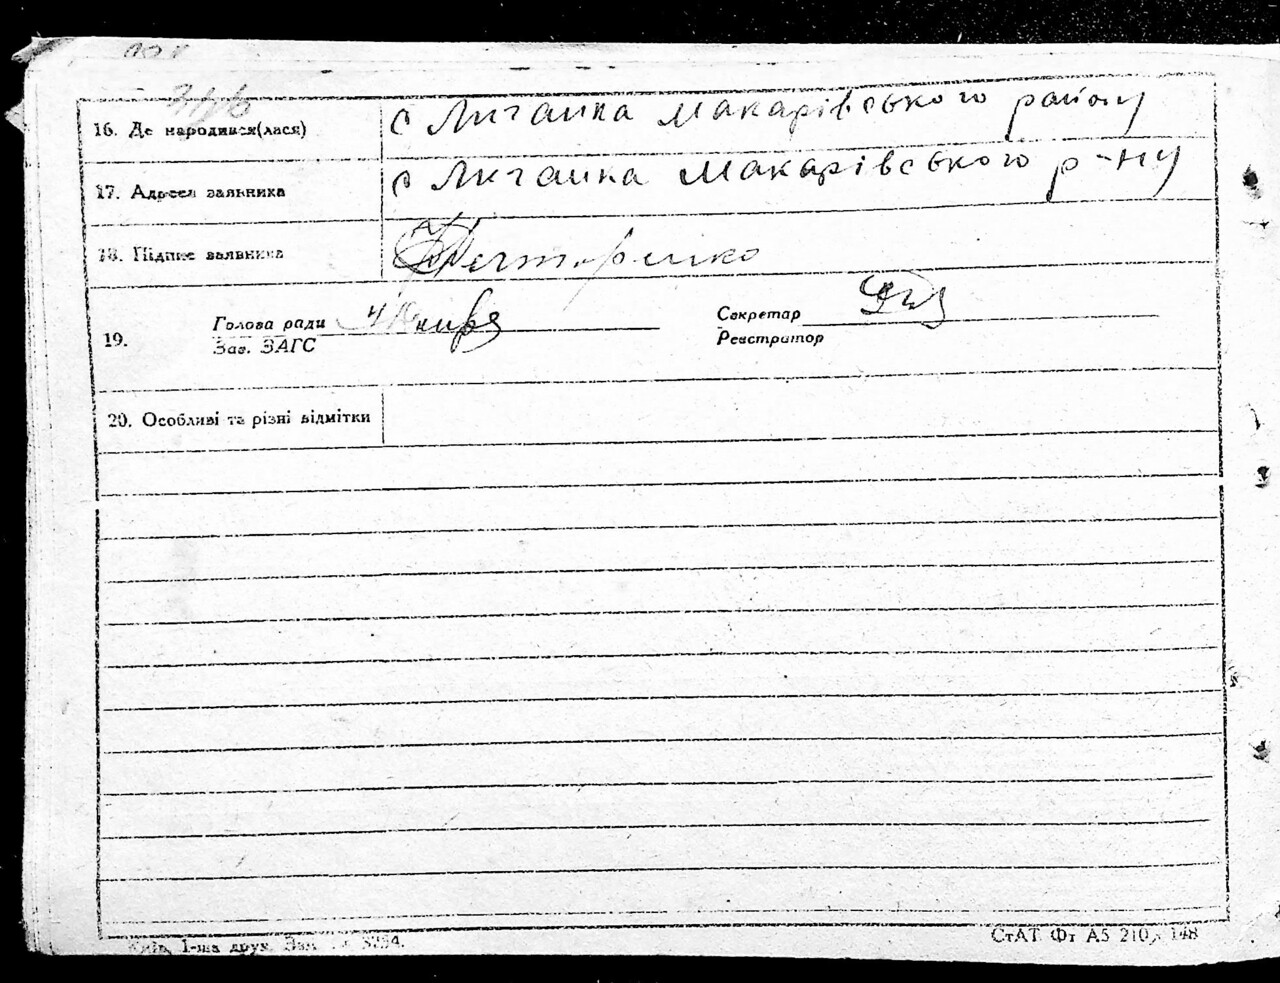 16. Де народився(лася) с Личанка Макарівського району
17. Адреса заявника с Личанка Макарівського р-ну
18. Підпис заявника Нечипоренко
19. Голова ради Секретар
Зав. ЗАГС Реєстратор
20. Особливі та різні відмітки
Київ, 1-ша друк. Зам. 8254.
СтАТ Фт А5 210 х 148